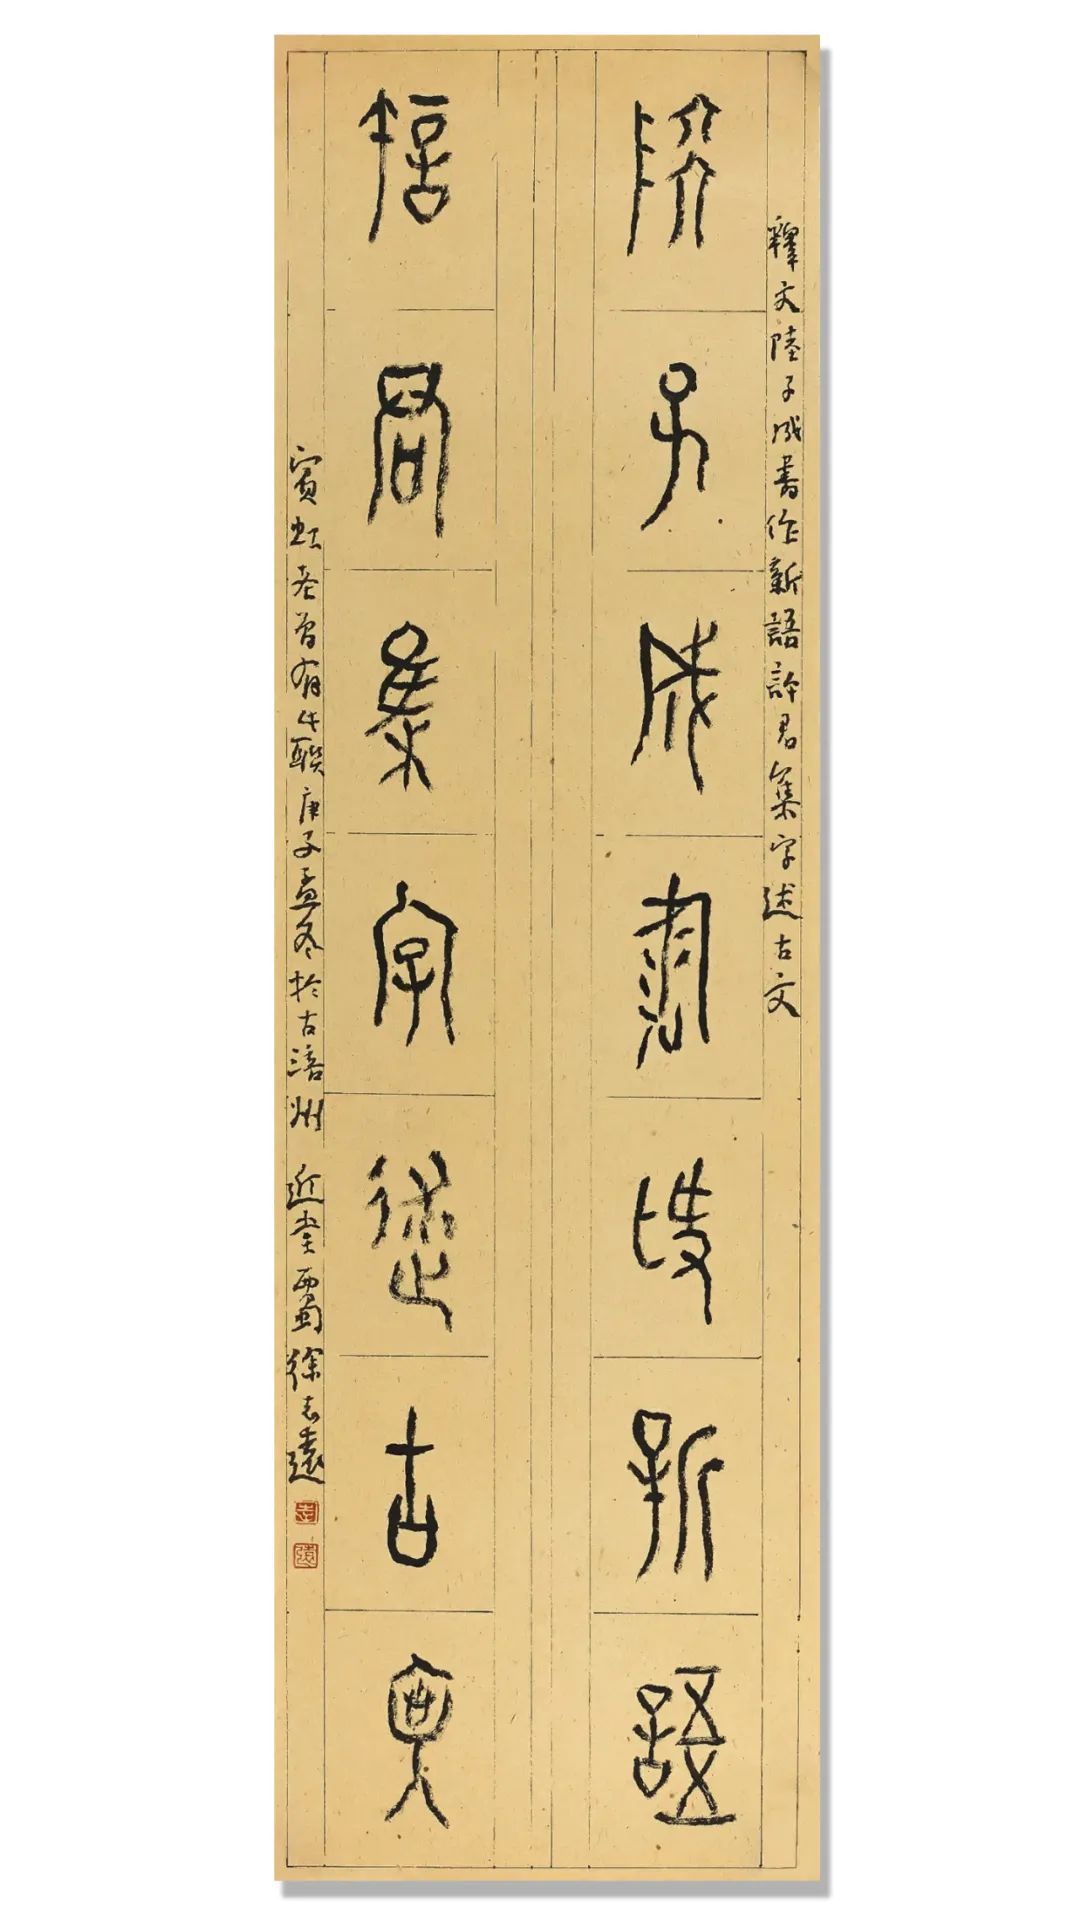 釋文陸子成書作新語許君集字述古文
陸子成書作新語
許君集字述古文
賓虹老曾有此聯庚子孟冬於古涪州近堂西蜀徐志遠
志
遠